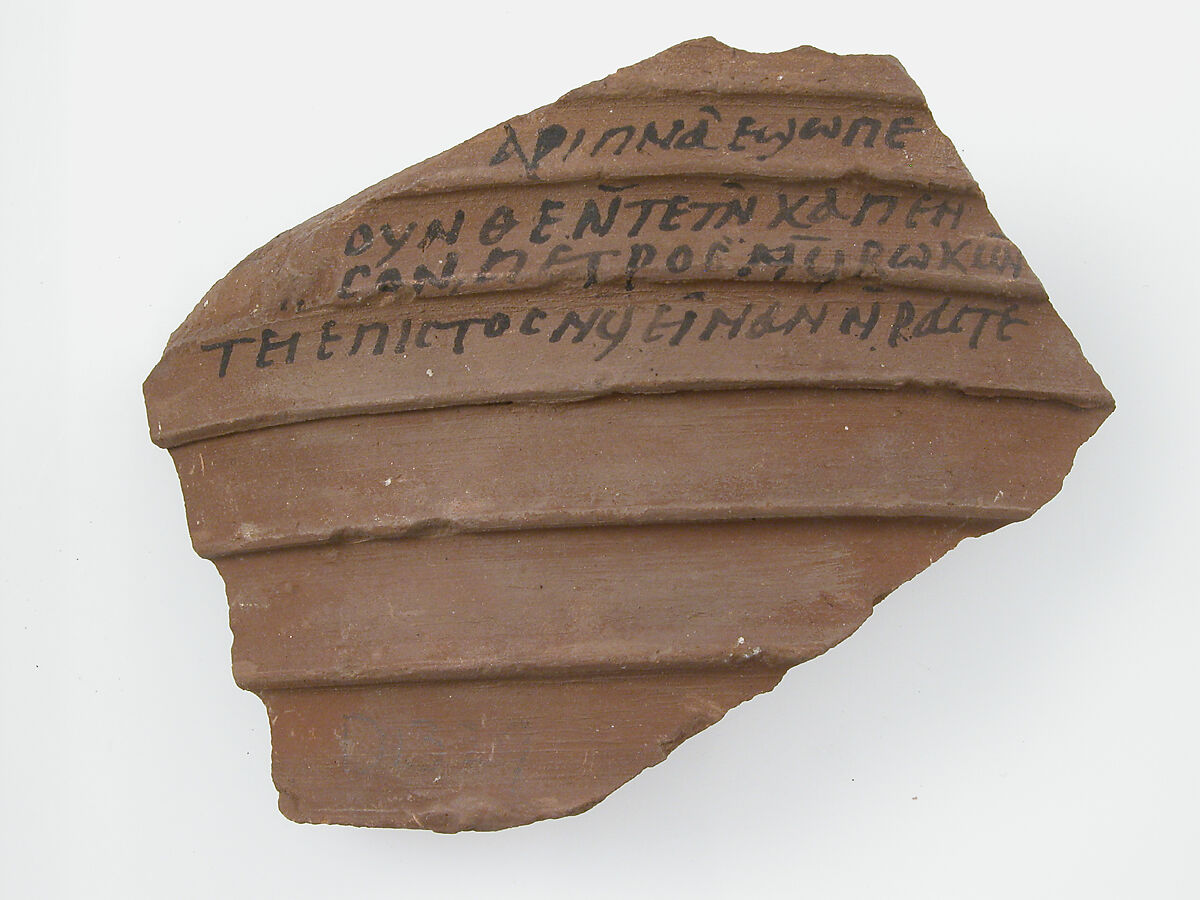 ⲁⲣⲓⲡⲛⲁ ⲉϣⲱⲡⲉ
ⲟⲩⲛ ⲑⲉ ⲛ̄ⲧⲉⲧⲛ̄ⲭⲁ ⲡⲉⲛ
ⲥⲟⲛ ⲡⲉⲧⲣⲟⲥ ⲛϥⲃⲱⲕ
ⲧⲉⲓⲉⲡⲓⲥⲧⲟⲥ ⲛϥⲉⲓ ⲛⲁⲛ ⲛ̄ⲣⲁⲥⲧⲉ